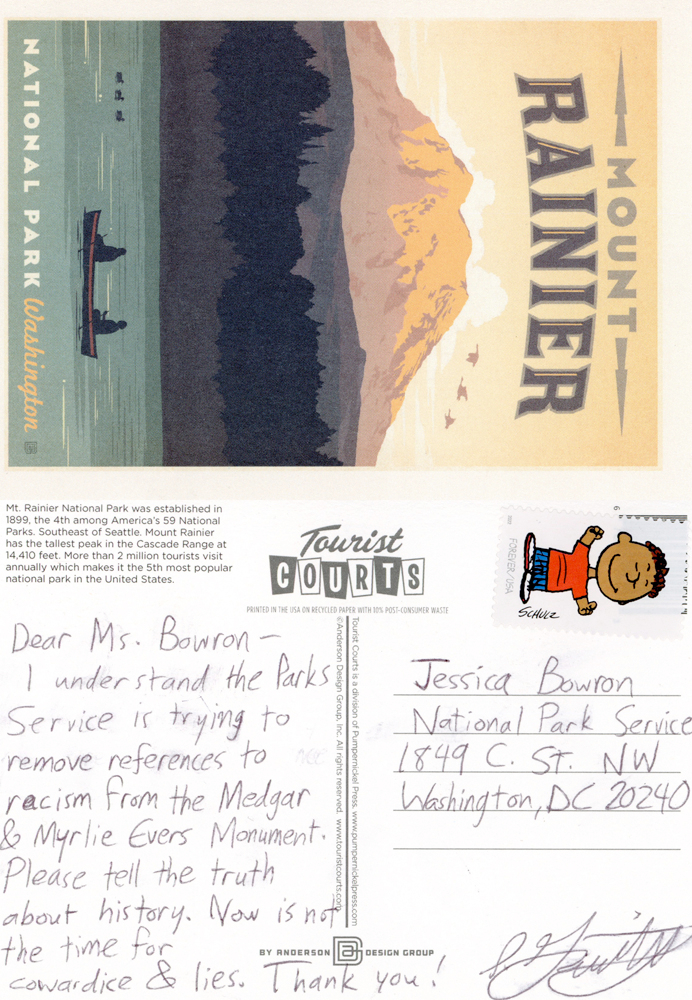 MOUNT
RAINIER
NATIONAL PARK Washington
Mt. Rainier National Park was established in
1899, the 4th among America's 59 National
Parks. Southeast of Seattle. Mount Rainier
has the tallest peak in the Cascade Range at
14,410 feet. More than 2 million tourists visit
annually which makes it the 5th most popular
national park in the United States.
Tourist
COURTS
PRINTED IN THE USA ON RECYCLED PAPER WITH 10% POST-CONSUMER WASTE
FOREVER/USA
SCHULZ
Dear Ms. Bowron –
I understand the Parks
Service is trying to
remove references to
racism from the Medgar
& Myrlie Evers Monument.
Please tell the truth
about history. Now is not
the time for
cowardice & lies. Thank you!
Tourist Courts is a division of Pumpernickel Press. www.pumpernickelpress.com
©Anderson Design Group, Inc. All rights reserved. www.touristcourts.com
Jessica Bowron
National Park Service
1849 C. St. NW
Washington, DC 20240
BY ANDERSON DESIGN GROUP